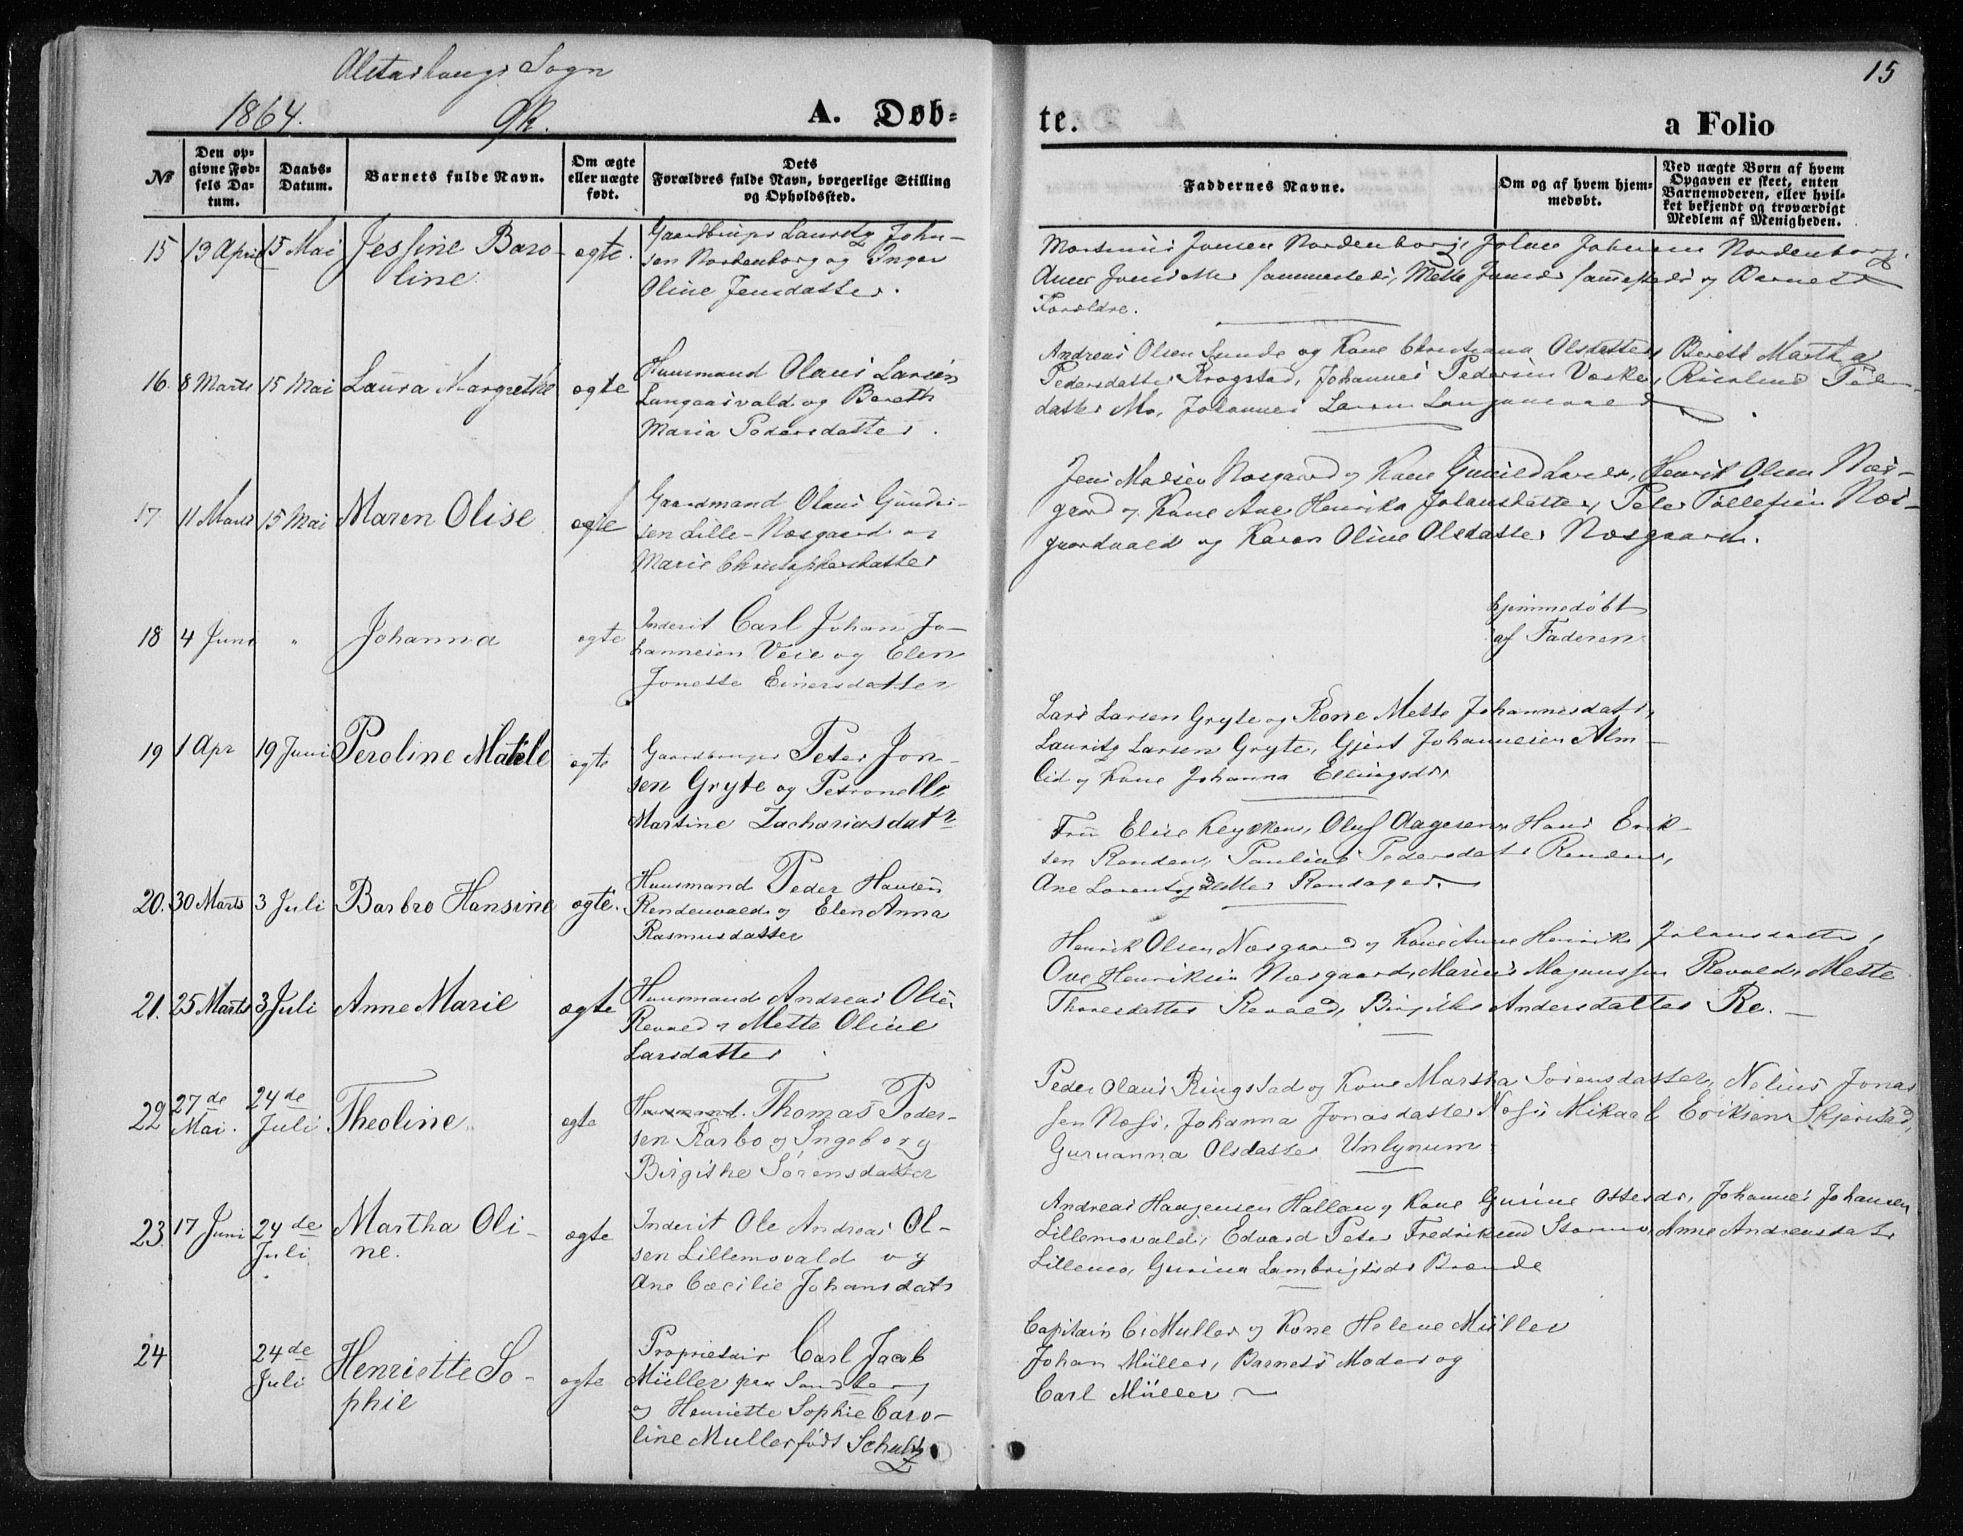 Alstarhougs Sogn
15
1864.
Qk.
A. Døb-
te.
a Folio
No
Den op-
givne Fød-
sels Da-
tum.
Daabs-
Datum.
Barnets fulde Navn.
Om ægte
eller uægte
født.
Dets
Forældres fulde Navn, borgerlige Stilling
og Opholdssted.
Faddernes Navne.
Om og af hvem hjem-
medøbt.
Ved uægte Børn af hvem
Opgaven er skeet, enten
Barnemoderen, eller hvil-
ket bekjendt og troværdigt
Medlem af Menigheden.
15 13 April 15 Mai Jessine Baro-
line
ægte.
Gaardbruger Lauritz John-
sen Nordenborg og Inger
Oline Jensdatter.
Jonsen Nordenborg, Nordenborg,
sammesteds, Mette sammesteds og Barnets
Forældre.
16. 8 Marts 15 Mai Laura Margrethe ægte
Huusmand Olaus Larsen
Langaasvald og Bereth
Maria Pedersdatter.
Andreas Olsen Sunde og Kone Christiana Olsdatter, Berett Martha
Pedersdatter Krogstad, Johannes Pedersen
datter Mo, Johannes Larsen
17. 11 Marts 15 Mai Maren Olise ægte
Gaardmand Olaus Gunder-
sen Lille-Næsgaard og
Marie Christophersdatter
Jens Madsen Næsgaard og Kone Henrik Olsen Næs-
gaard og Kone Ane Henrika Johansdatter, Peter Tollefsen Næs-
gaardvald og Karen Oline Olsdatter Næsgaard.
18 4 Juni " Johanna ægte
Inderst Carl Johan Jo-
hannesen Veie og Elen
Jonette Einersdatter
hjemmedøbt
af Faderen
19 1 Apr 19 Juni Peroline Matile ægte
Gaardbruger Peter Jon-
sen Gryte og Petronelle
Martine Zachariasdatr
Lars Larsen Gryte og Kone Mette Johannesdatr,
Lauritz Larsen Gryte, Gjert Johannesen Alm-
lid og Kone Johanna Ellingsdr,
20. 30 Marts 3 Juli Barbro Hansine ægte.
Huusmand Peder Hansen
Rendenvald og Elen Anna
Rasmusdatter
Fru Elise Oluf Aagesen, Hans Erik-
sen Renden, Pauline Pedersdatr Renden,
Ane Lorentzdatter
21. 25 Marts 3 Juli Anne Marie ægte
Huusmand Andreas Olse
Revald og Mette Oline
Larsdatter
Henrik Olsen Næsgaard og Kone Anne Henrike Johansdatter,
Ove Henriksen Næsgaard, Marius Magnussen Revald, Mette
Thoresdatter Revald, Birgithe Andersdatter Re.
22 27de
Mai. 24de
Juli Theoline ægte
Huusmand. Thomas Peder-
sen Karbo og Ingeborg
Birgithe Sørensdatter
Peder Olaus Ringstad og Kone Martha Sørensdatter, Nelius Jonas
sen Næss, Johanna Jonasdatter Næss, Mikael Eriksen Skjerstad,
Guruanna Olsdatter
23. 17 Juni 24de
Juli. Martha Oli-
ne. ægte
Inderst Ole Andreas Ol-
sen Lillemovald og
Ane Cæcilie Johansdatr
Andreas Haagensen Halland og Kone Gurine Ottesdr, Johannes Johansen
Lillemovald, Edvard Peter Fredriksen Stormo, Anne Andreasdatr
Lillemo, Gurina Lambrigtsdr Brænde
24 24de
Juli Henriette So-
phie ægte
Proprietair Carl Jacob
Müller paa
og Henriette Sophie Caro-
line Muller født Schultz
Capitain C. Muller og Kone Helene Müller
Johan Müller, Barnets Moder og
Carl Müller